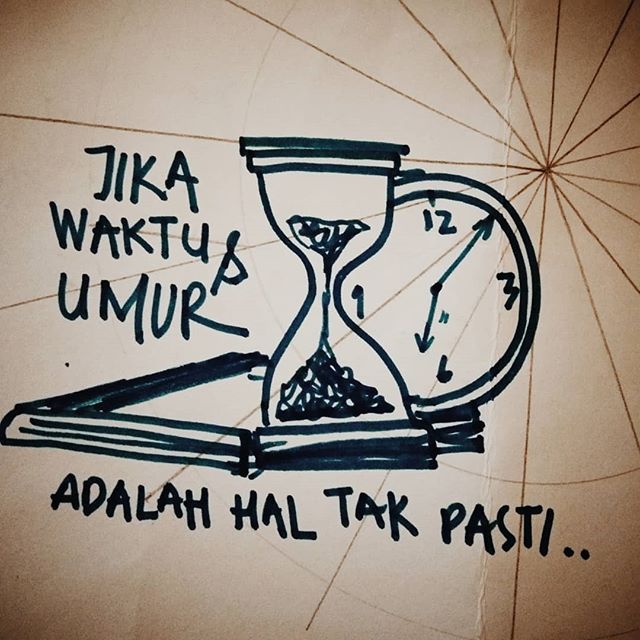 JIKA
WAKTU &
UMUR
12
3
6
9
ADALAH HAL TAK PASTI..